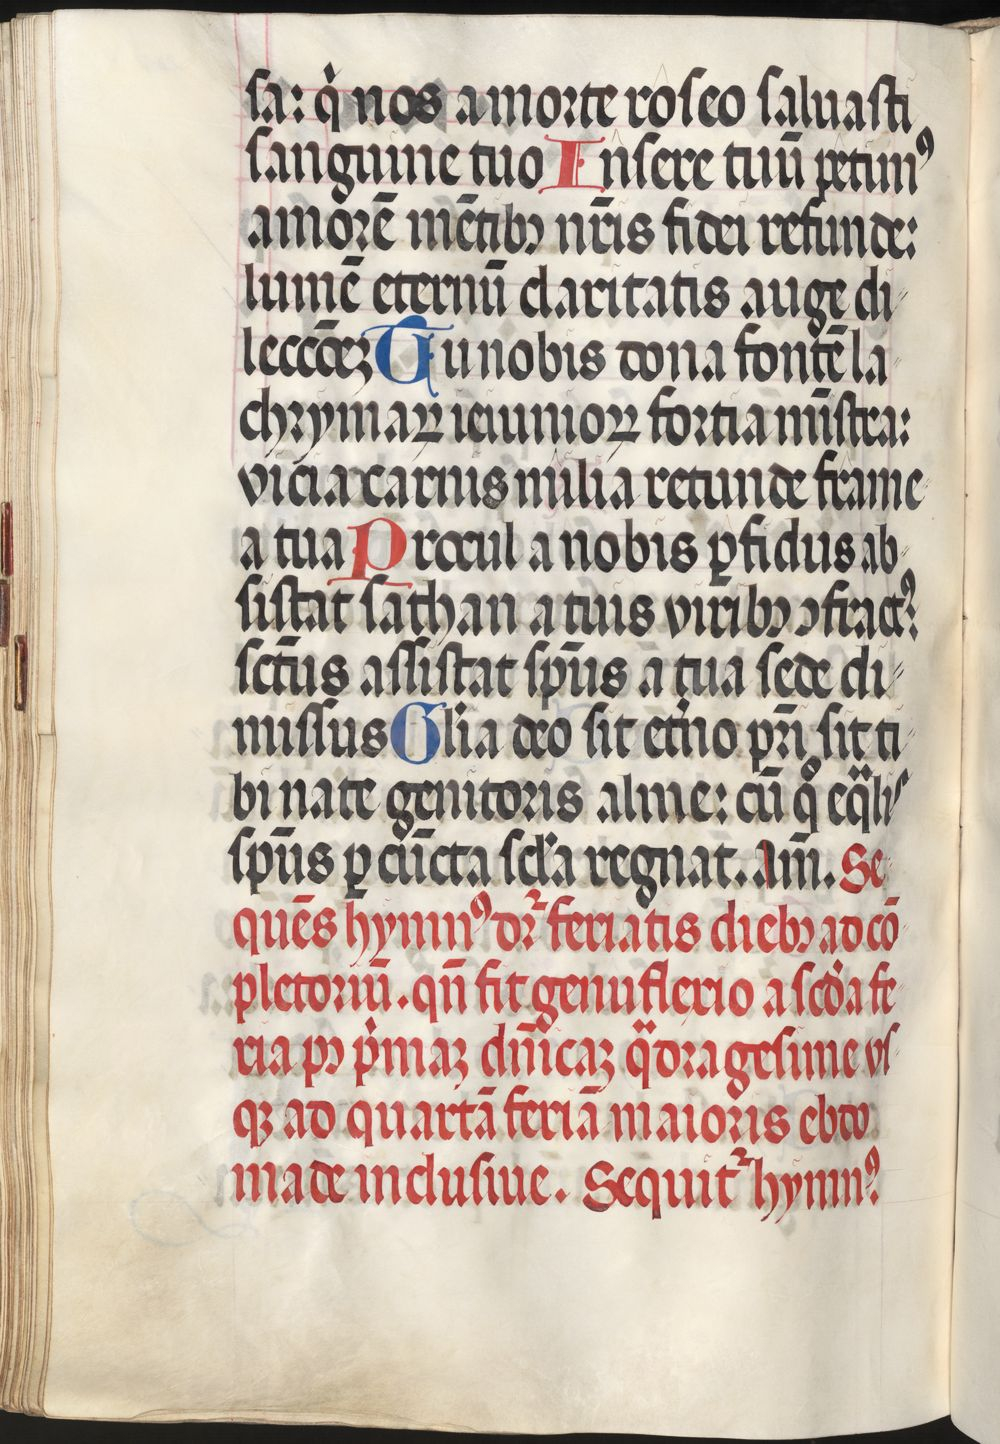 sa: qͥ nos a morte roseo saluasti
sanguine tuo Insere tuū petimꝰ
amorē mētibꝫ nr̄is fidei refunde:
lumē eternū claritatis auge di
leccōeꝫ Tu nobis dona fontē la
chrymaꝝ ieiunioꝝ fortia mīstra:
vicia carnis milia retunde frame
a tua Procul a nobis ꝑfidus ab
sistat sathan a tuis viribꝫ ↄfractꝰ:
sctūs assistat spūs a tua sede di
missus Glīa deo sit et̄no pr̄i sit ti
bi nate genitoris alme: cū qͦ eqᷓlis
spūs ꝑ cūcta scl̄a regnat. Am̄. Se
quēs hymnꝰ dr̄ feriatis diebꝫ ad cō
pletoriū. qn̄ fit genuflexio a scd̄a fe
ria pꝰ pͥmaꝫ dn̄icaꝫ qᷓdragesime vs
qꝫ ad quartā feriā maioris ebdo
made inclusiue. Sequit᷑ hymnꝰ: